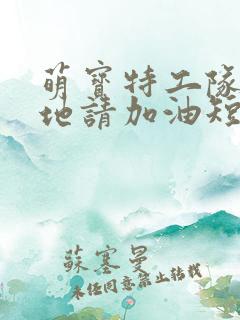 萌寶特工隊
地請加油短
蘇塞曼
未任同意禁止转載